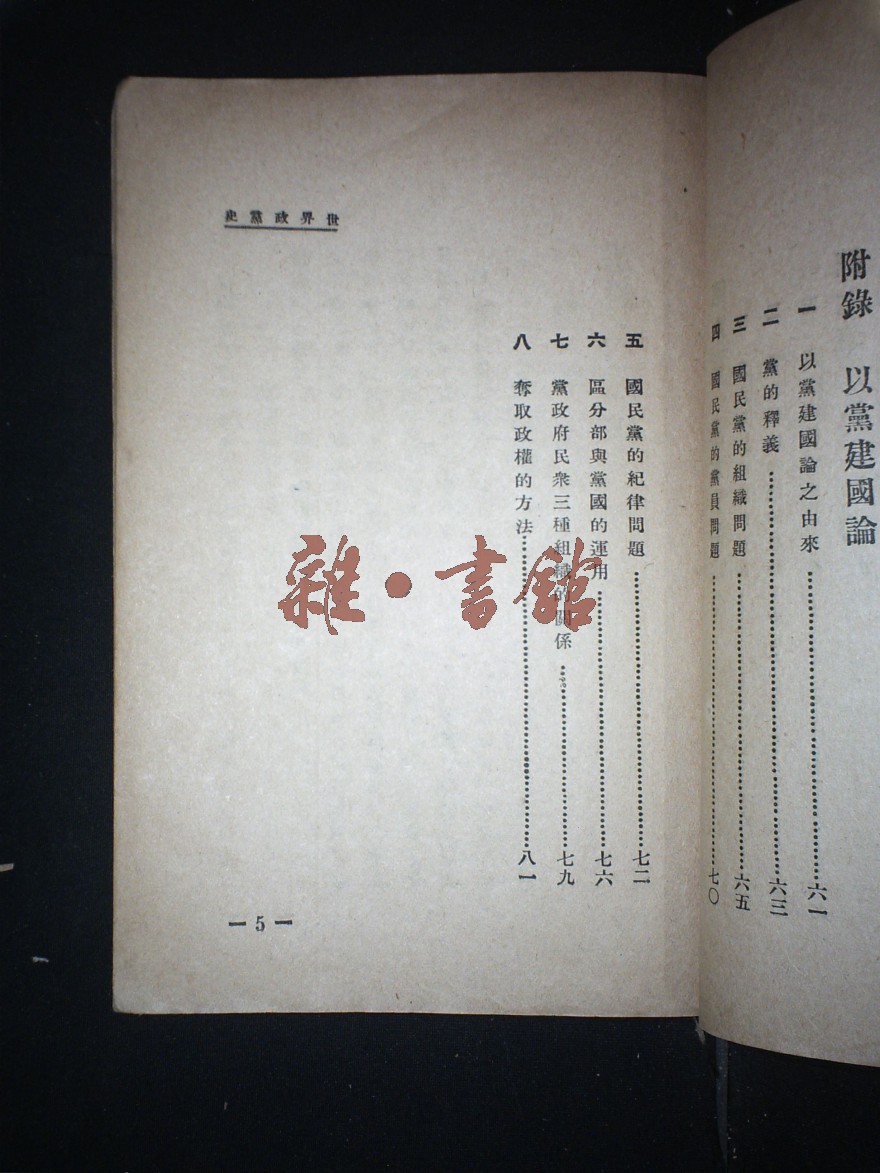 附錄 以黨建國論
一 以黨建國論之由來……六一
二 黨的釋義……六三
三 國民黨的組織問題……六五
四 國民黨的黨員問題……七〇
世界政黨史
五 國民黨的紀律問題……七二
六 區分部與黨國的運用……七六
七 黨政府民衆三種組織的關係……七九
八 奪取政權的方法……八一
— 5 —
雜·書館